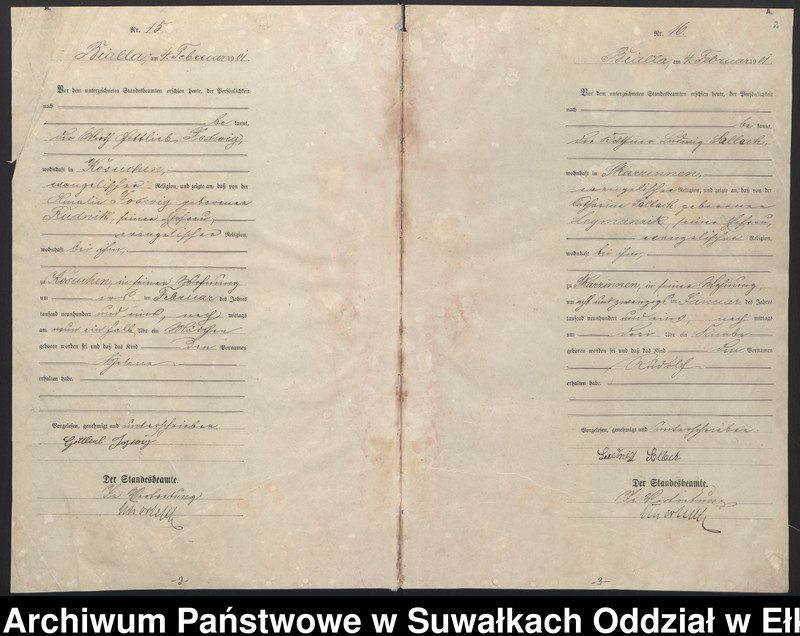 Nr. 15
Bialla, am 4. Februar 1901
Vor dem unterzeichneten Standesbeamten erschien heute, der Persönlichkeit
nach
be kannt,
der Wirth Gottlieb Joswig,
wohnhaft in Kosuchen,
evangelischer Religion, und zeigte an, daß von der
Amalie Joswig geborenen
Rudnik, seiner Ehefrau,
evangelischer Religion,
wohnhaft bei ihm,
zu Kosuchen, in seiner Wohnung
am ersten Februar des Jahres
tausend neunhundert und eins, nach mittags
um neun ein halb Uhr ein Mädchen
geboren worden sei und daß das Kind den Vornamen
Helene
erhalten habe.
Vorgelesen, genehmigt und unterschrieben.
Gottlieb Joswig
Der Standesbeamte.
In Vertretung
-2-
2
Nr. 16
Bialla am 4. Februar 1901
Vor dem unterzeichneten Standesbeamten erschien heute, der Persönlichkeit
nach
be kannt,
der Käthner Ludwig Sallach,
wohnhaft in Skarzinnen,
evangelischer Religion, und zeigte an, daß von der
Katharine Sallach geborenen
seiner Ehefrau,
evangelischer Religion,
wohnhaft bei ihm,
zu Skarzinnen, in seiner Wohnung,
am acht und zwanzigsten Januar des Jahres
tausend neunhundert und eins, nach mittags
um drei Uhr ein Knabe
geboren worden sei und daß das Kind den Vornamen
Rudolf
erhalten habe.
Vorgelesen, genehmigt und unterschrieben.
Ludwig Sallach
Der Standesbeamte.
In Vertretung
-3-
Archiwum Państwowe w Suwałkach Oddział w Ełk